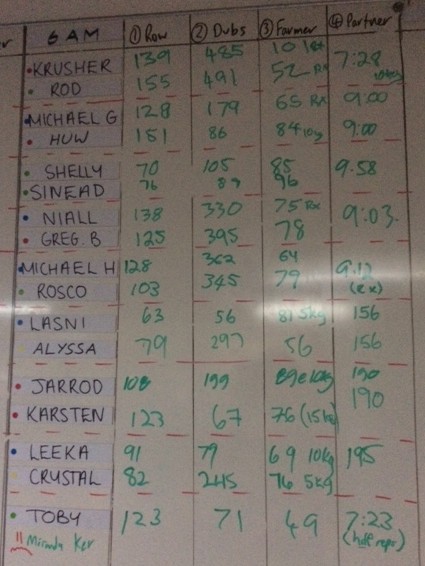 6 AM ① Row ② Dubs ③ Farmer ④ Partner
KRUSHER 139 485 7:28
ROD 155 491 52 Rx
MICHAEL G 128 179 65 Rx 9:00
HUW 151 86 84 10kg 9:00
SHELLY 70 105 85 9.58
SINEAD 76 89 96
NIALL 138 330 75 Rx 9:03.
GREG. B 125 395 78
MICHAEL H 128 362 64 9.12
ROSCO 103 345 79 (Rx)
LASNI 63 56 81 5kg 156
ALYSSA 79 297 56 156
JARROD 108 199 190
KARSTEN 123 67 76 (15kg) 190
LEEKA 91 79 69 10kg 195
CRYSTAL 82 245 76 5kg
TOBY 123 71 49 7:23
Miranda Ker (half reps)